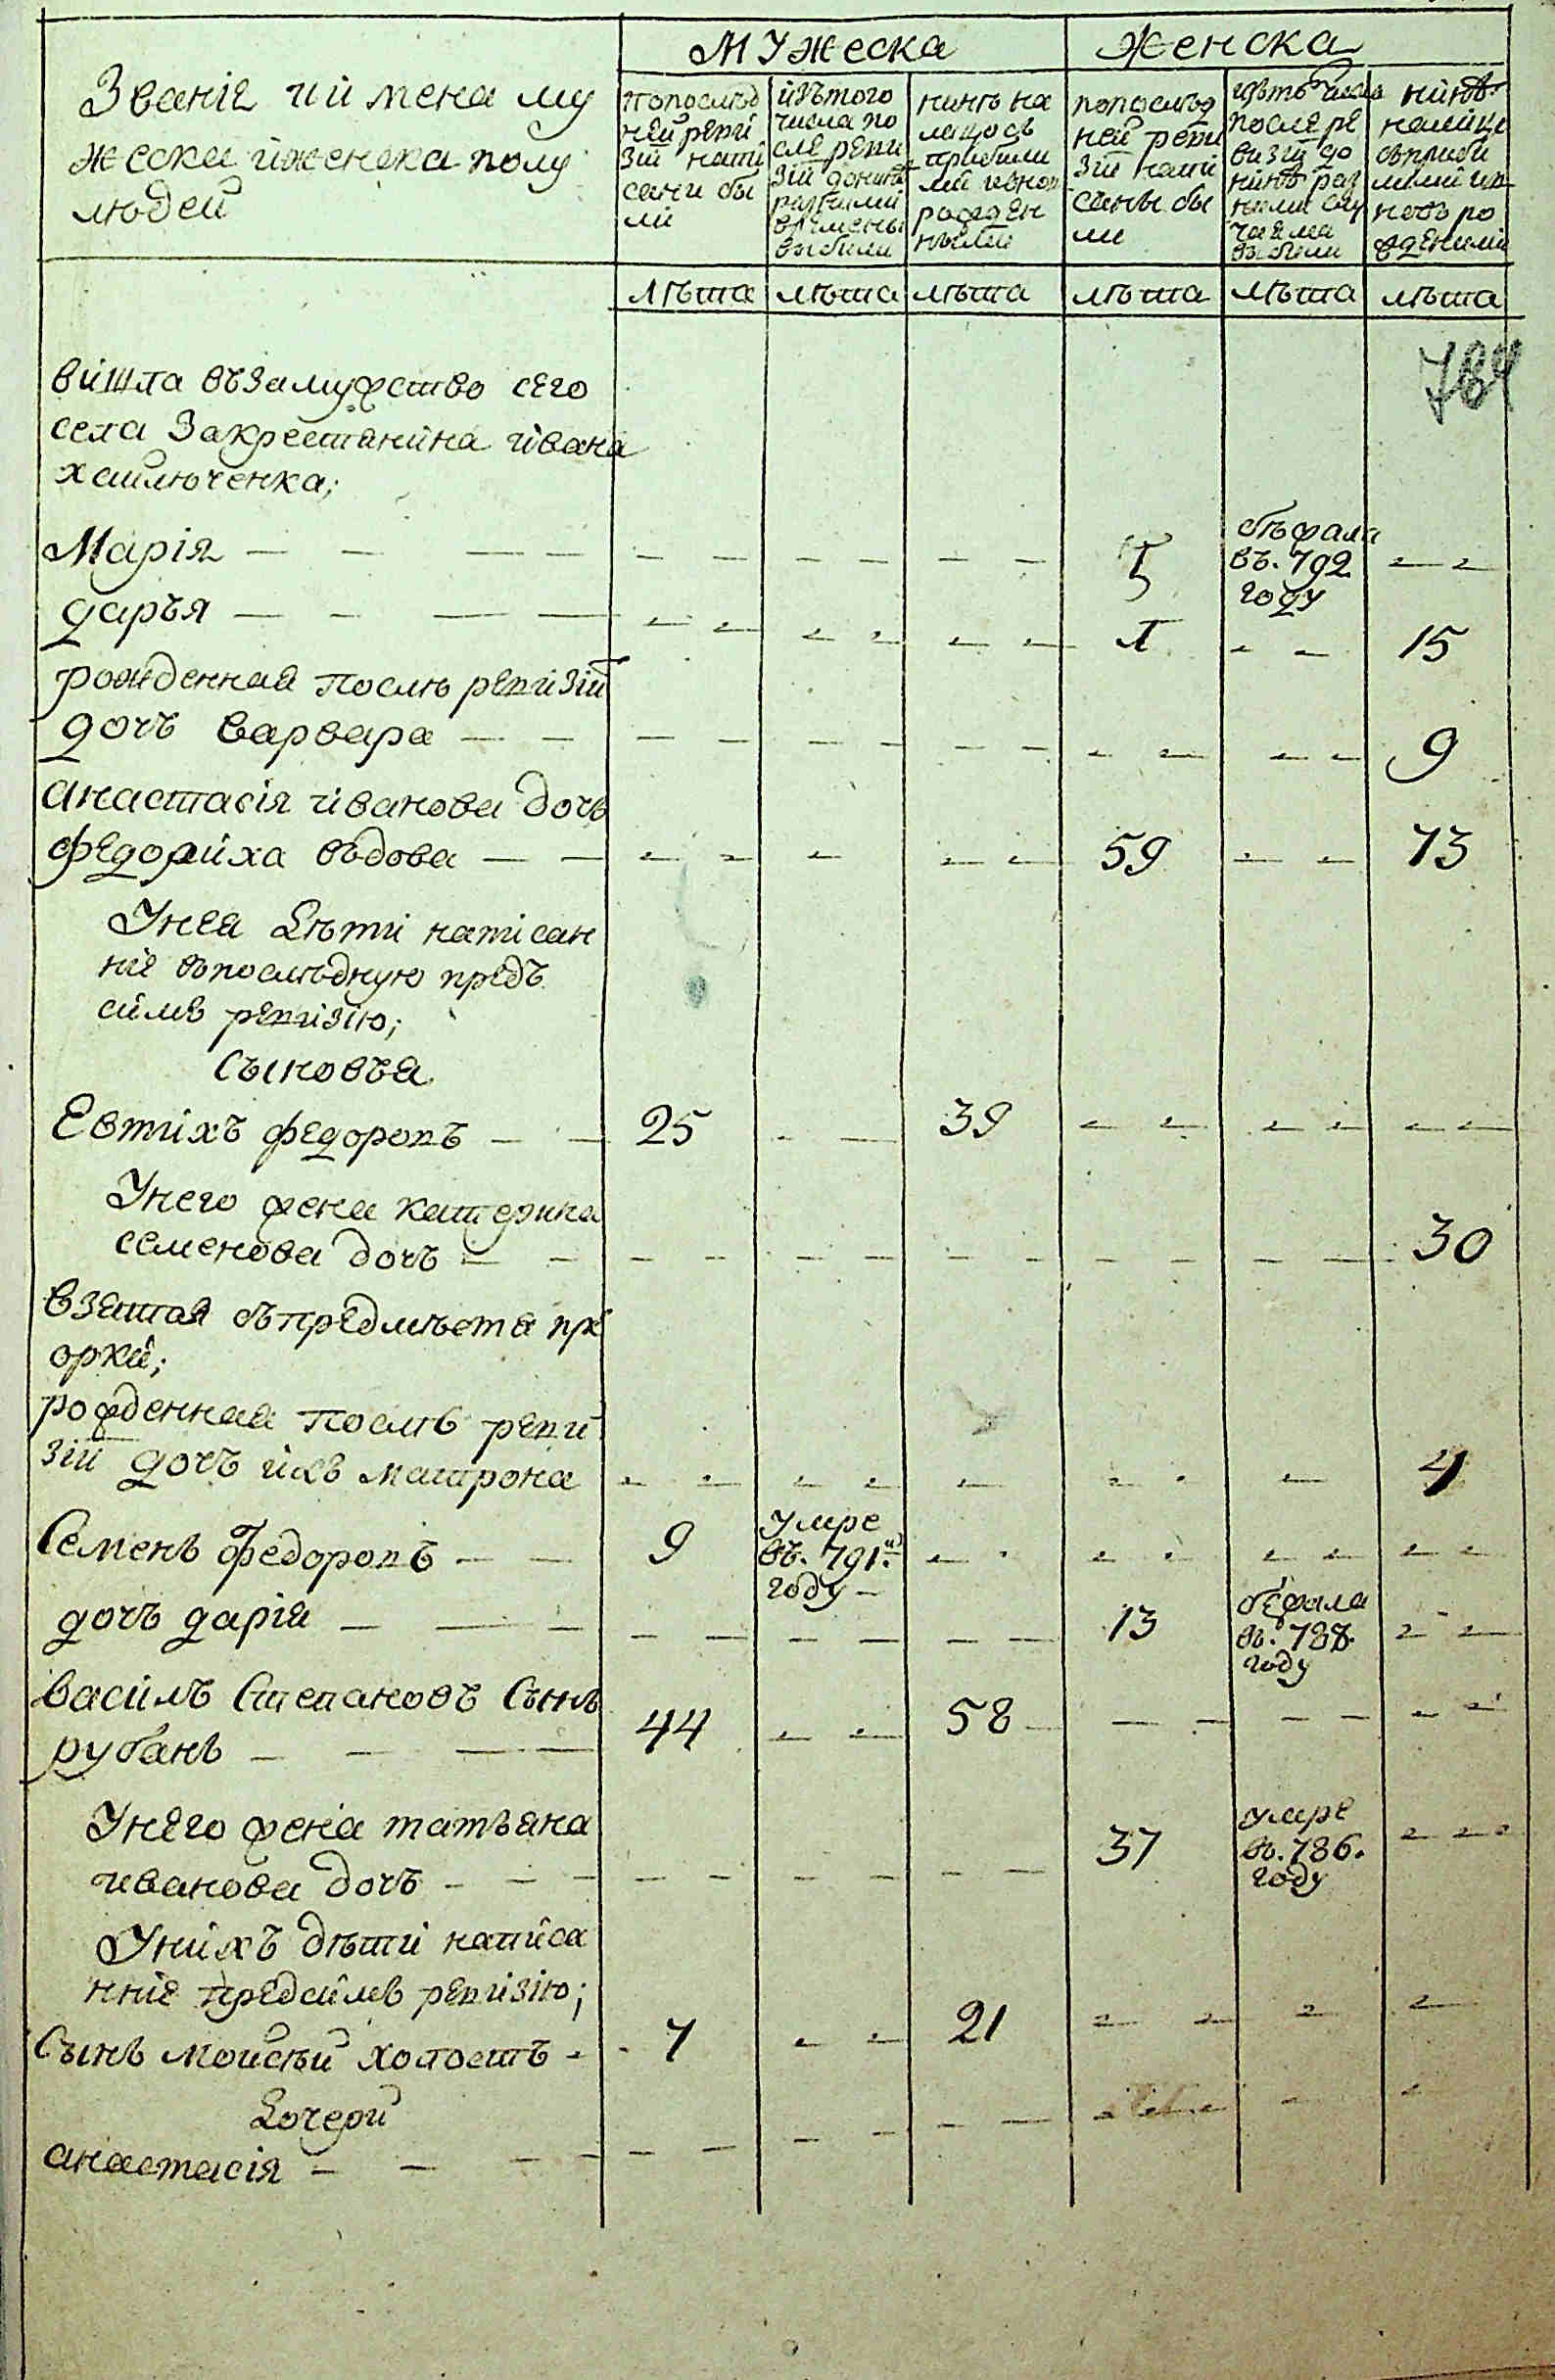 Мужеска
Женска
Званіе и имена му
жеска и женска полу
людей
попослѣд
ней реви
зіи напи
сани бы
ли
изътого
числа по
сле реви
зіи донинѣ
разними
времены
выбили
нинѣ на
лицосъ
прибили
ми ивнов
рожден
ными
попослѣд
ней реви
зіи напи
саны бы
ли
изътого числа
после ре
визіи до
нинѣ раз
ними слу
чаяма
выбили
нинѣ
налице
съприби
лими ив
новъ ро
жденими
лѣта лѣта лѣта лѣта лѣта лѣта
784
вишла въ замужство сего
села За крестянина ивана
хайлюченка;
Марія — — — — — — — — — — 5 збѣжала въ. 792 году — —
дарья — — — — — — — — — — 1 — — 15
рожденная послѣ ревизіи
дочъ варвара — — — — — — — — — — — — 9
анастасія иванова дочь
федориха вѣдова — — — — — — — 59 — — 73
Унея дѣти написан
ніе въпослѣдную предъ
симъ ревизію;
Сыновъя
Евтихъ федоровъ — — 25 — — 39 — — — — — —
Унего жена катерина
семенова дочъ — — — — — — — — — — — — 30
взятая съпредмѣстя пре
орки;
рожденная послѣ реви
зіи дочъ ихъ матрона — — — — — — — — 4
Семенъ Федоровъ — — 9 умре въ. 791м году — — — — — — — — —
дочъ дарія — — — — — — — — — 13 збѣжала въ. 788. году — —
василъ Степановъ Сынъ
рубанъ — — — — 44 — — 58 — — — — — — —
Унего жена татъяна
иванова дочъ — — — — — — — — — 37 умре въ. 786. году — — —
Унихъ дѣти написа
нніе предсимъ ревизію;
Сынъ мойсѣй холостъ — 7 — — 21 — — — —
Дочери
анастасія — — — — — — — — — — — —